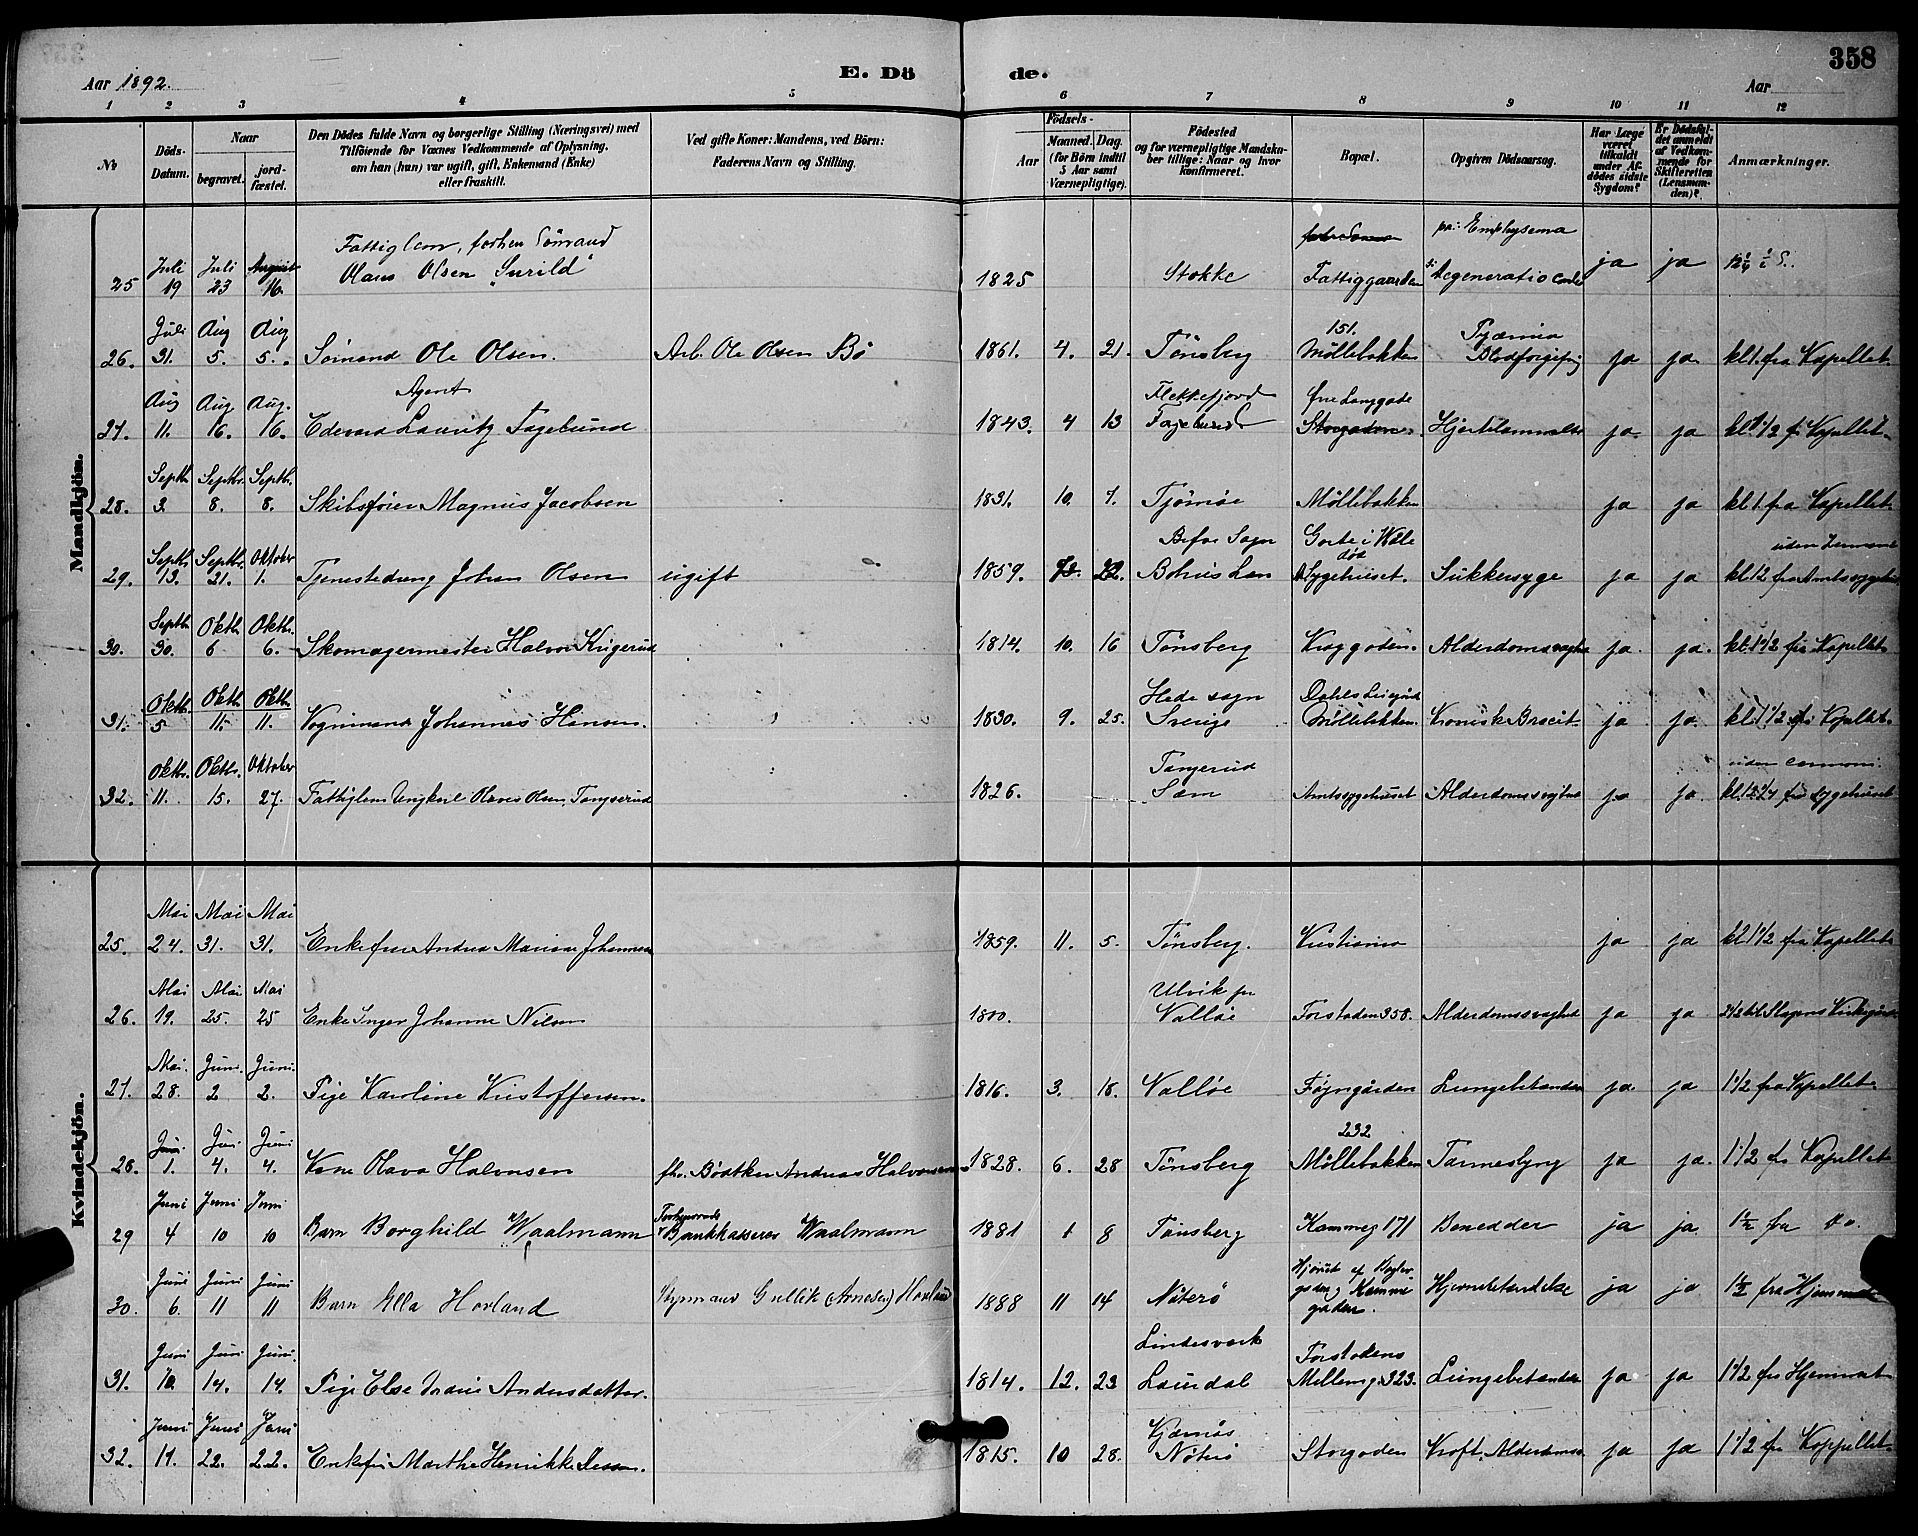 358
Aar 1892.
E. Dö
de.
Aar
1 2 3 4 5 6 7 8 9 10 11 12
No
Döds-Datum.
Naar
begravet.
jord-fæstet.
Den Dödes fulde Navn og borgerlige Stilling (Næringsvei) med
Tilföiende for Voxnes Vedkommende af Oplysning,
om han (hun) var ugift, gift, Enkemand (Enke)
eller fraskilt.
Ved gifte Koner: Mandens, ved Börn:
Faderens Navn og Stilling.
Födsels-
Aar
Maaned. Dag.
(for Börn indtil
5 Aar samt
Værnepligtige).
Födested
og for værnepligtige Mandska-
ber tillige: Naar og hvor
konfirmeret.
Bopæl.
Opgiven Dödsaarsag.
Har Læge
været
tilkaldt
under Af-
dödes sidste
Sygdom?
Er Dödsfal-
det anmeldt
af Vedkom-
mende for
Skifteretten
(Lensman-
den)?
Anmærkninger.
Mandkjön.
25 Juli 19 Juli 23 August 16. Fattiglem, forhen Sömand Olaus Olsen "Surild" 1825 Stokke Fattiggaarden pr: Emphysema Degeneratio cordis ja ja
26. Juli 31. Aug 5. Aug 5. Sömand Ole Olsen. Arb. Ole Olsen Bö 1861. 4. 21. Tönsberg 151. Möllebakken Pyæmia Blodforgiftg ja ja kl 1. fra Kapellet.
27. Aug 11. Aug 16. Aug. 16. Agent Edvard Lauritz Fagelund 1843. 4 13 Flekkefjord Fagelund Övre Langgade Storgaden. Hjertelammelse ja ja kl 1 1/2 fr Kapellet.
28. Septb. 3. Septbr. 8. Septbr. 8. Skibsförer Magnus Jacobsen 1831. 10. 7. Tjömöe Möllebakken ja ja kl 1. fra Kapellet
29. Septb. 13. Septb. 21. Oktober 1. Tjenestedreng Johan Olsen ugift 1859. 22. Sogn Bohus Len i Vaale död Sygehuset. Sukkersyge ja ja kl 12 fra Amtssygehus
30. Septb. 30. Oktb. 6 Oktb. 6. Skomagermester Halvor Krigerud 1814. 10. 16 Tönsberg Kraggaden. Alderdomssvaghed ja ja. kl. 1 1/2 fra Kapellet
31. Oktb. 5 Oktb 11. Oktb. 11. Vognmand Johannes Hansen. 1830. 9. 25. Hede sogn Sverige Möllebakken. Kronisk ja ja. kl 1 1/2 fr Kapellet.
32. Oktb. 11. Oktb. 15. Oktober 27. Fattiglem Ungkarl Olaves Olsen Tangerud 1826. Tangerud Sæm Amtssygehuset Alderdomssvaghed ja ja. uden Cermoni. kl. 12 1/4 fra Sygehuset
Kvindekjön.
25. Mai 24. Mai 31. Mai 31. Enkefru Andrea Mariane Johannesen 1859. 11. 5. Tönsberg. Kristiania ja ja kl 1 1/2 fra Kapellet
26. Mai 19. Mai 25. Mai 25 Enke Inger Johanne Nilsen 1800. Ulvik pr Vallöe Forstaden 358. Alderdomssvaghed ja ja 2 1/2 til Slagens Kirkegård
27. Mai. 28. Juni. 2 Juni. 2. Pige Karoline Kristoffersen. 1816. 3. 18. Vallöe Föyngården Lungebetændelse ja ja 1 1/2 fra Kapellet.
28. Juni. 1. Juni. 4. Juni 4. Kone Olava Halvorsen fhv. Bödtker Andreas Halvorsen 1828. 6. 28 Tönsberg 232 Möllebakken Tarmeslyng ja ja. 1 1/2 fr Kapellet
29 Juni 4 Juni 10 Juni 10 Barn Borghild Waalmann Forhenværende Bankkasserer Waalmann 1881 1 8 Tönsberg Kammeg 171 Benedder ja ja. 1 1/2 fra Do.
30. Juni 6. Juni 11 Juni 11 Barn Ella Hovland Styrmand Gullik (Arnesen) Hovland 1888 11 14 Nöterö Hjörnet af gaden Kamme gaden. Hjernebetændelse ja ja 1 1/2 fra Hjemmet
31. Juni 10. Juni 14. Juni. 14. Pige Else Marie Andersdatter. 1814. 12. 23 Lindesværk Laurdal Forstadens Mellemg. 323. Lungebetændelse ja ja 1 1/2 fra Hjemmet
32. Juni 17. Juni 22. Juni 22. Enkefru Marthe Henrikke 1815. 10 28. Kjærnäs Nöterö Storgaden Kræft, Alderdoms ja ja 1 1/2 fr Kappellet.